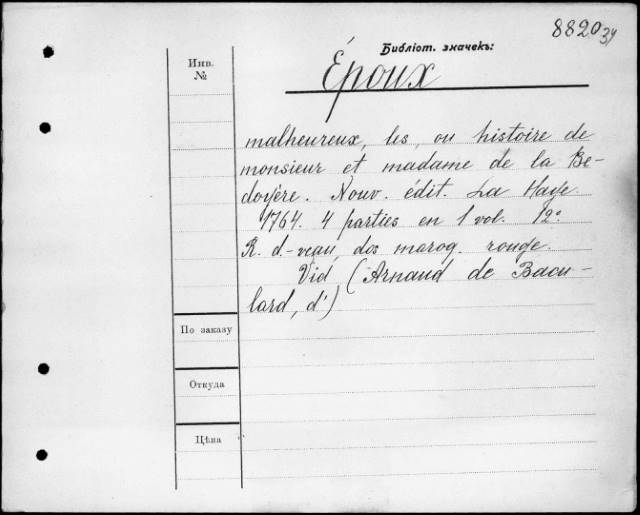 8820 34
Библіот. значекъ:
Инв.
№
Époux
malheureux, les, ou histoire de
monsieur et madame de la Be-
doyère. Nouv. édit. La Haye.
1764. 4 parties en 1 vol. 12°
R. d.-veau, dos maroq. rouge.
Vid (Arnaud de Bacu-
lard, d')
По заказу
Откуда
Цѣна